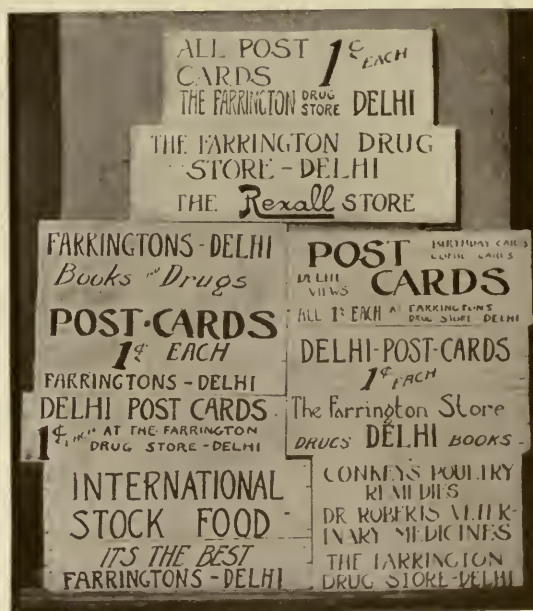 ALL POST 1¢ EACH
CARDS
THE FARRINGTON DRUG STORE DELHI
THE FARRINGTON DRUG
STORE - DELHI
THE Rexall STORE
FARRINGTONS - DELHI
Books and Drugs
POST-CARDS
1¢ EACH
FARRINGTONS - DELHI
DELHI POST CARDS
1¢ EACH AT THE FARRINGTON
DRUG STORE - DELHI
INTERNATIONAL
STOCK FOOD
ITS THE BEST
FARRINGTONS - DELHI
POST BIRTHDAY CARDS
COMIC CARDS
DELHI VIEWS CARDS
ALL 1¢ EACH AT FARRINGTONS
DRUG STORE DELHI
DELHI-POST-CARDS
1¢ EACH
The Farrington Store
DRUGS DELHI BOOKS -
CONKEYS POULTRY
REMEDIES
DR ROBERTS VETER-
INARY MEDICINES
THE FARRINGTON
DRUG STORE-DELHI